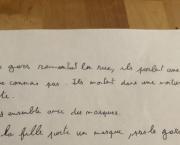 gars remontent la rue, ils parlent avec
connais pas. Ils montent dans une voiture
te.
ensemble avec des masques.
la fille porte un masque, pas le gars